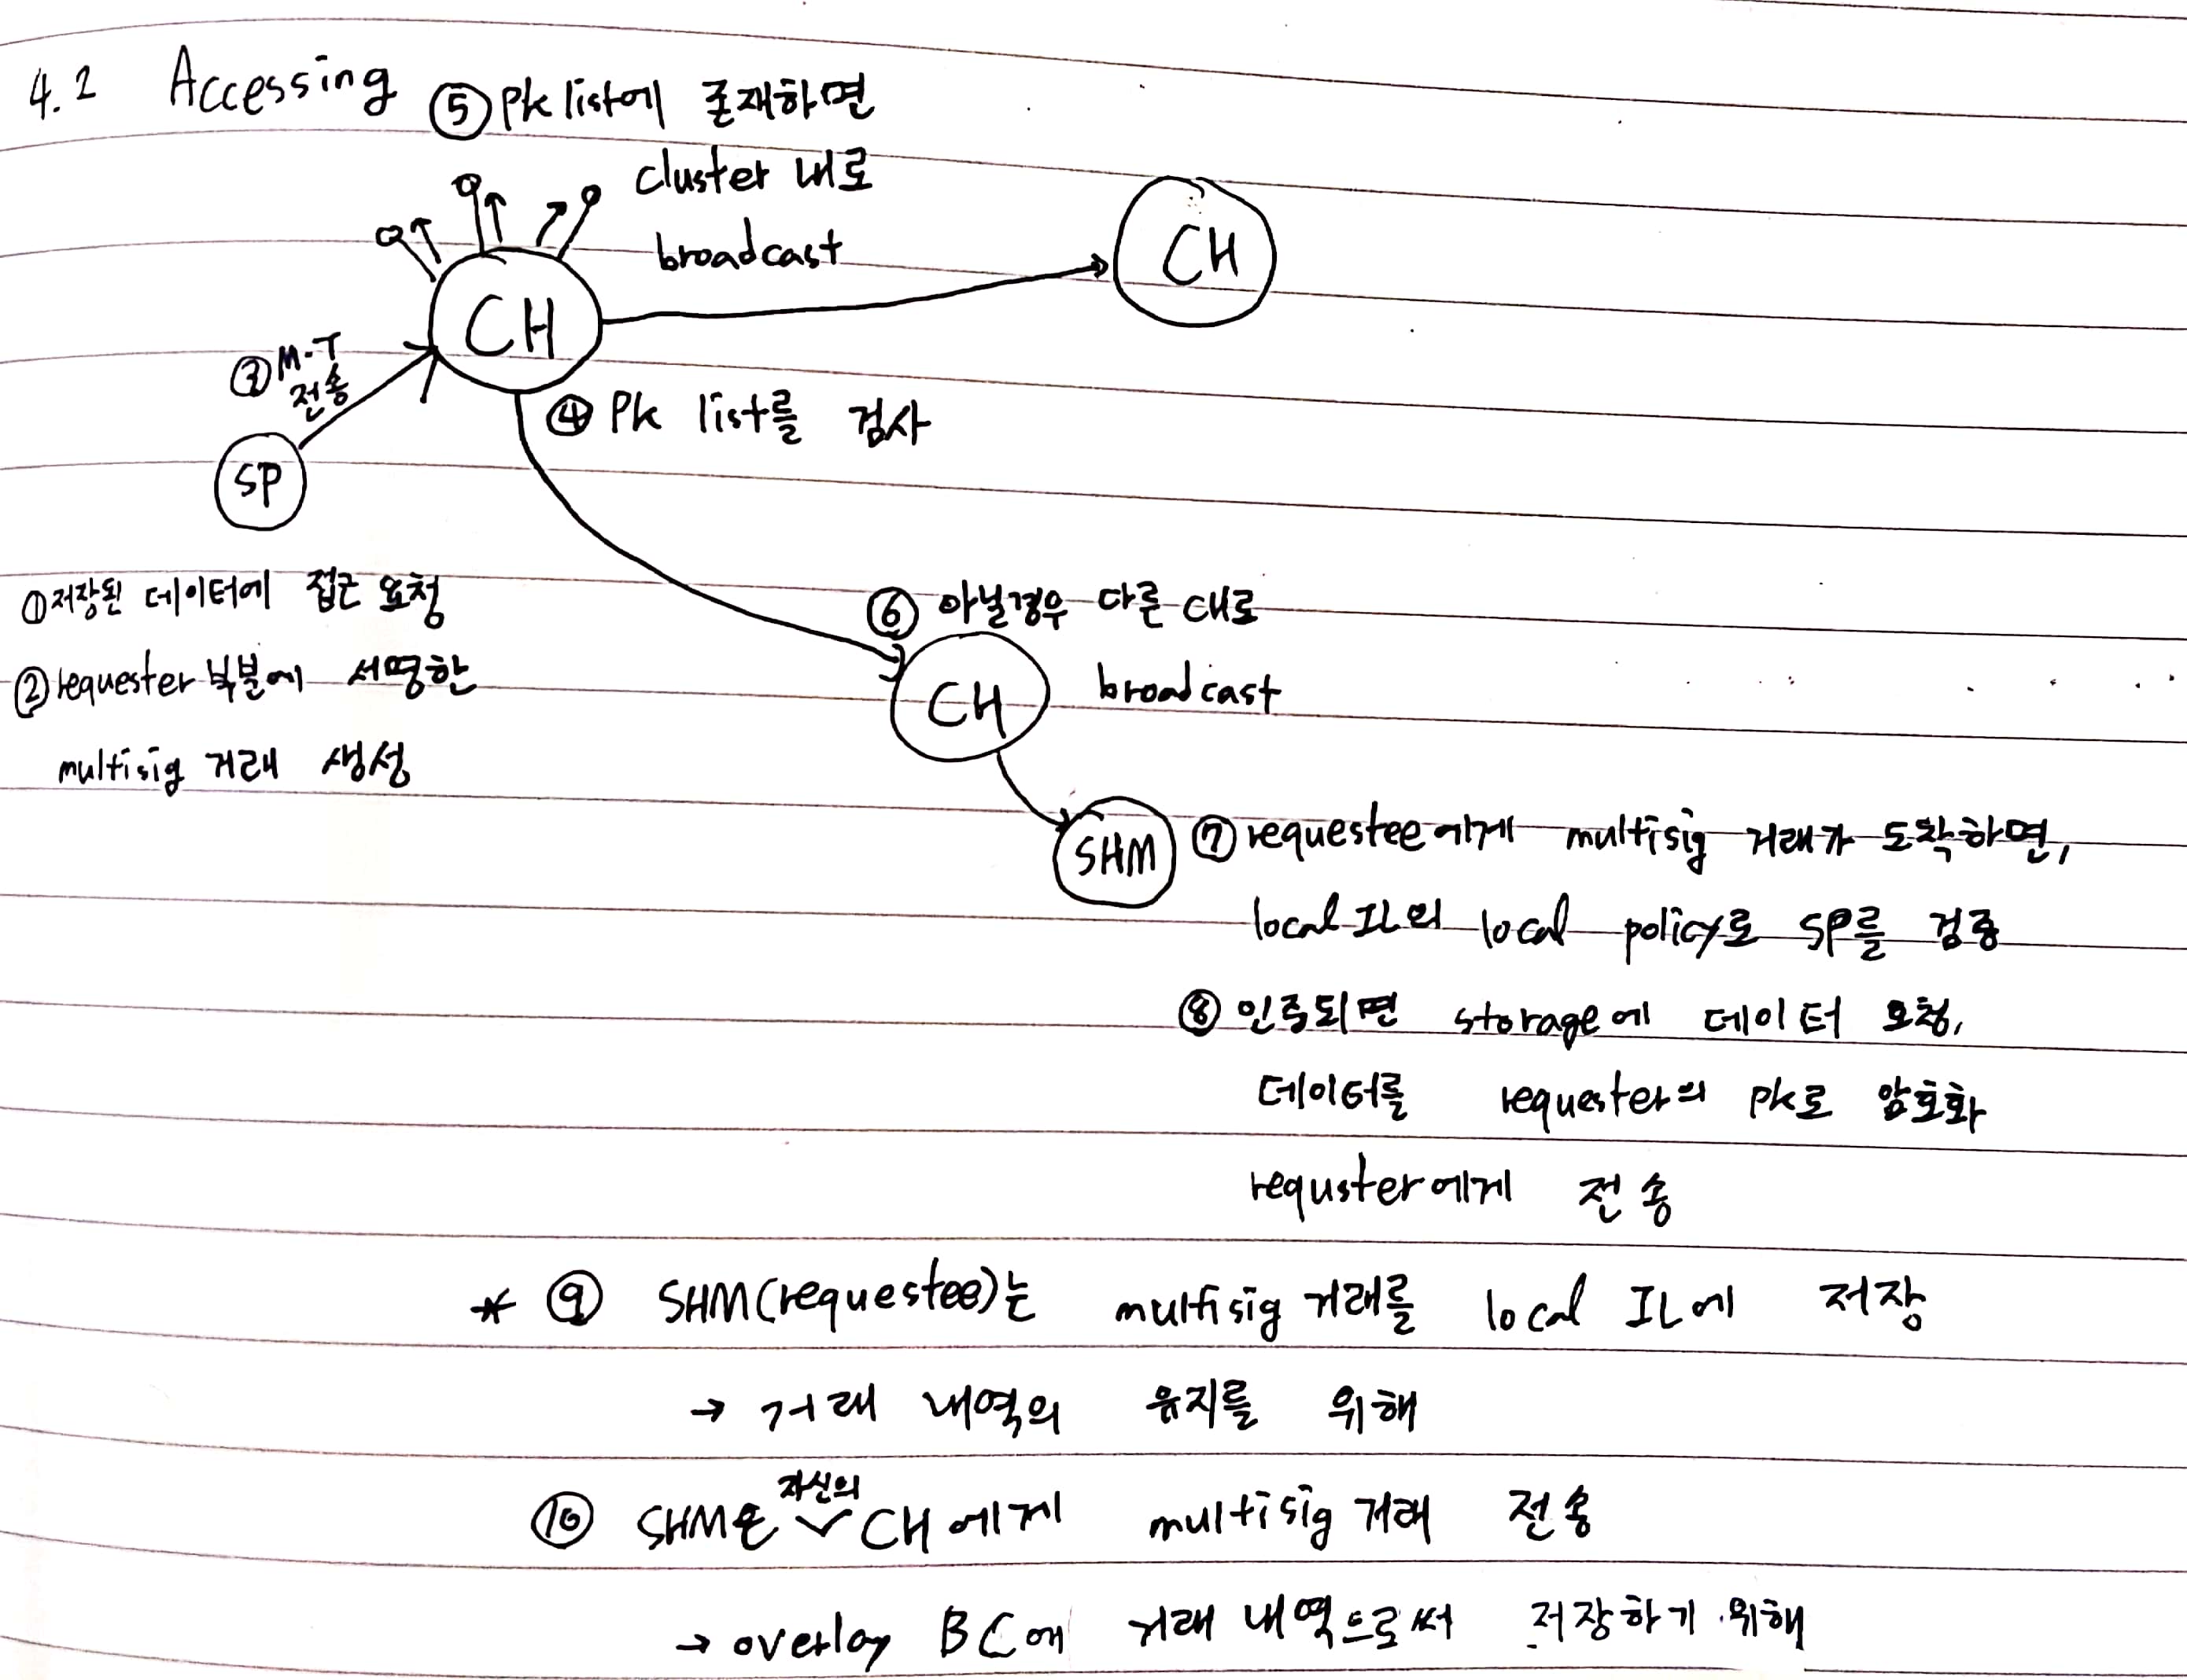 4.2 Accessing
⑤ PK list에 존재하면
cluster 내로
broadcast
CH
CH
③ M-T
전송
④ PK list를 검사
SP
① 저장된 데이터에 접근 요청
② requester 부분에 서명한
multisig 거래 생성
⑥ 아닐경우 다른 CH로
broadcast
CH
SHM
⑦ requestee에게 multisig 거래가 도착하면,
local IL의 local policy로 SP를 검증
⑧ 인증되면 storage에 데이터 요청,
데이터를 requester의 PK로 암호화
requster에게 전송
* ⑨ SHM(requestee)는 multisig 거래를 local IL에 저장
→ 거래 내역의 유지를 위해
⑩ SHM은 자신의 CH에게 multisig 거래 전송
→ overlay BC에 거래 내역으로써 저장하기 위해